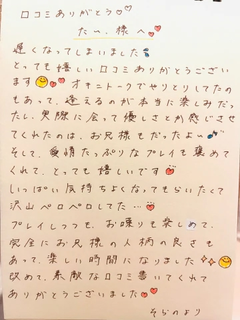 口コミありがとう
たい.様へ
遅くなってしまいました
とっても嬉しい口コミありがとうござい
ます オキニトークでやりとりしてたの
もあって、逢えるのが本当に楽しみだっ
たし、実際に会って優しさとか感じさせ
てくれたのは、お兄様もだったよー
そして、愛情たっぷりなプレイも褒めて
くれて、とっても嬉しいです
いっぱい気持ちよくなってもらいたくて
沢山ペロペロしてた…
プレイしつつも、お喋りも楽しめて、
完全にお兄様の人柄の良さも
あって、楽しい時間になりました
改めて、素敵な口コミ書いてくれて
ありがとうございました
そらのより